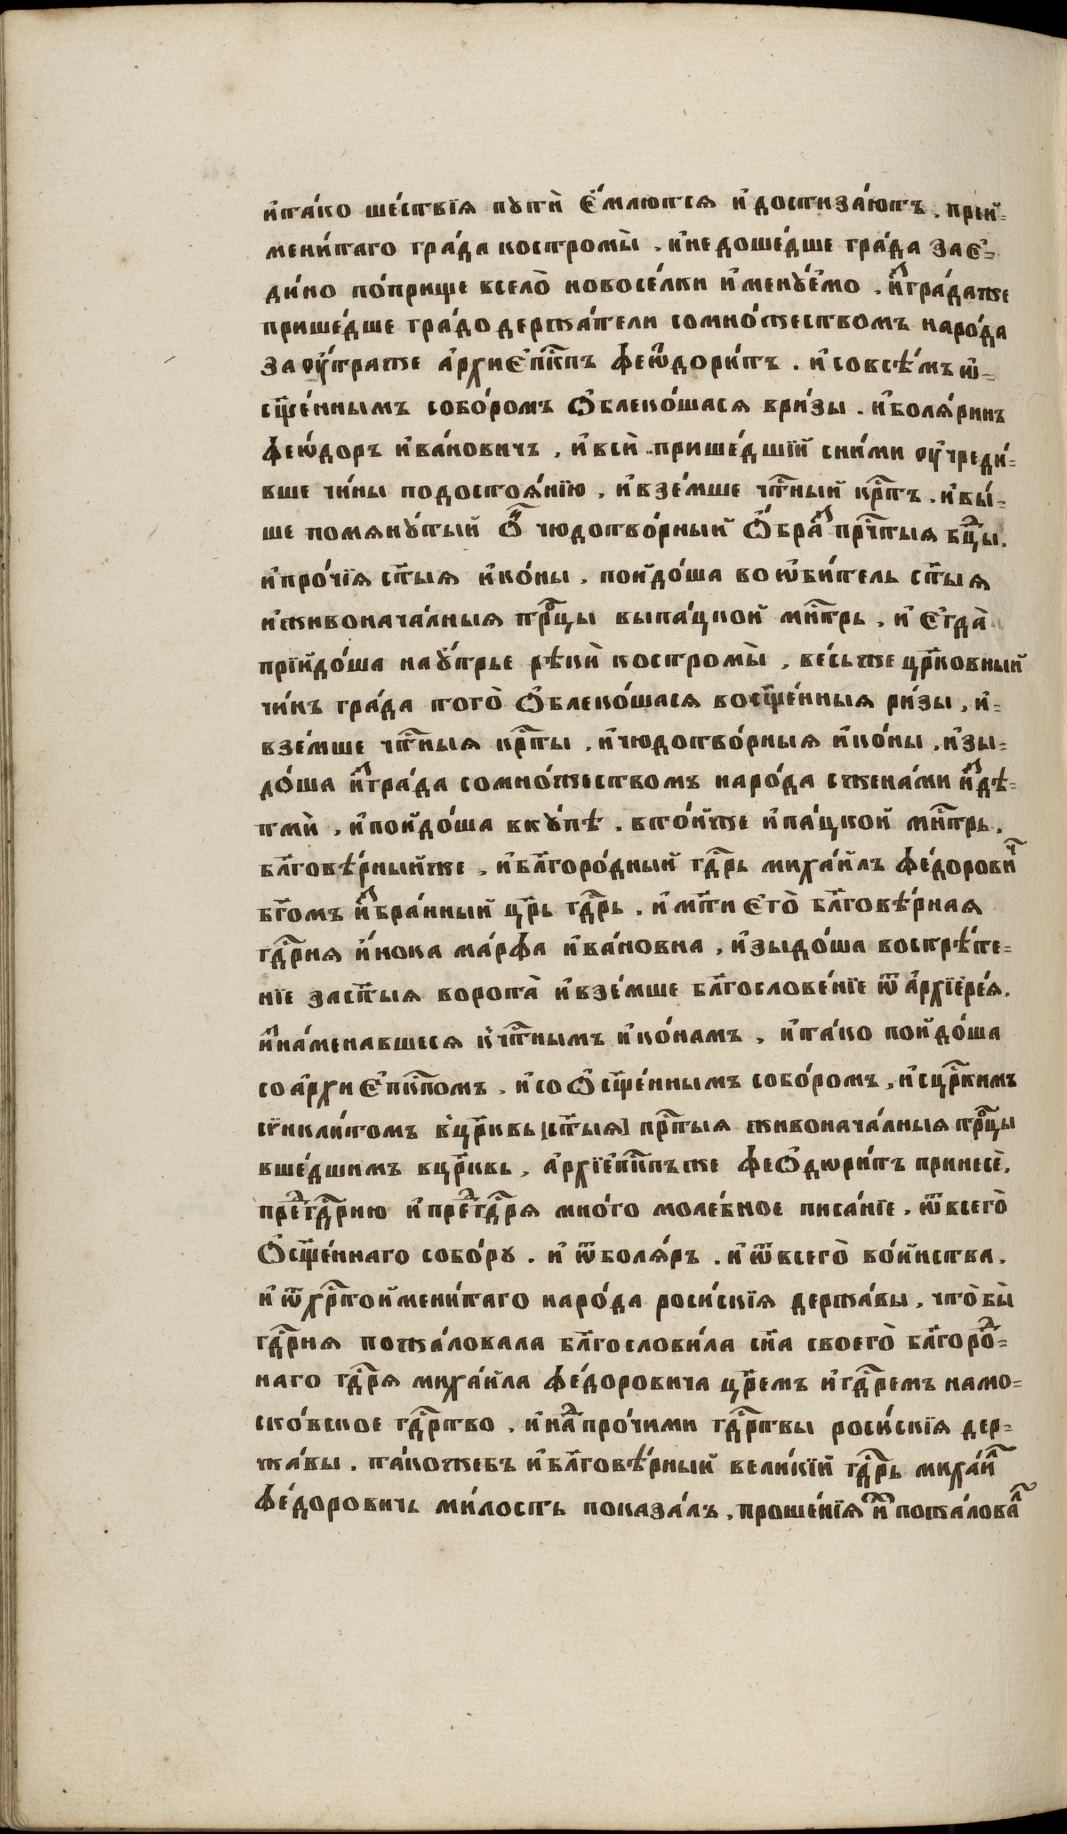 и҆та́ко ше́ствїѧ пꙋтѝ є҆́млютсѧ и҆достиза́ютъ, прои҆-
мени́таго гра́да костромы̀, и҆недоше́дше гра́да зає҆-
ди́но по́прище вселѡ̀ новосе́лки и҆менꙋ́емо, и҆згра́даже
прише́дше градодержа́тели сомно́жествомъ наро́да
заѹ҆́траже а҆рхиє҆пⷭ҇кпъ феѡ҆дори́тъ. и҆совсѣ́мъ ѡ҆-
сщ҃е́ннымъ собо́ромъ ѡ҆блеко́шасѧ ври́зы. и҆болѧ́ринъ
феѡ́доръ и҆ва́новичъ, и҆всѝ прише́дшїй сни́ми ѹ҆чреди́-
вше чи́ны подостоѧ́нїю, и҆взе́мше чⷭ҇тный крⷭ҇тъ, и҆вы́-
ше помѧнꙋ́тый ѡ҆́ⷩ чюдотво́рный ѡ҆́браⷥ прⷱ҇тыѧ бцⷣы,
и҆про́чїѧ ст҃ыѧ и҆ко́ны, пойдо́ша воѡ҆би́тель ст҃ыѧ
и҆живонача́лныѧ трⷪ҇цы выпа́цкой мⷭ҇трь, и҆ є҆гда̀
прїйдо́ша наꙋ҆́стрье рѣкѝ костромы̀, ве́сьже црⷭ҇ковный
чи́нъ гра́да того̀ ѡ҆блеко́шасѧ восщ҃е́нныѧ ри́зы, и҆-
взе́мше чⷭ҇тныѧ крⷭ҇ты, и҆чюдотво́рныѧ и҆ко́ны, и҆зы-
до́ша и҆згра́да сомно́жествомъ наро́да сжена́ми и҆здѣ-
тмѝ, и҆пойдо́ша вкꙋ́пѣ, вто́йже и҆па́цкой мⷭ҇трь,
бл҃говѣ́рныйже, и҆бл҃горо́дный гдⷭ҇рь михаи́лъ фе́дорович
бг҃омъ и҆збра́нный цр҃ь гдⷭ҇рь, и҆мт҃и є҆гѡ̀ бл҃говѣ́рнаѧ
гдⷭ҇рнѧ и҆́нока ма́рфа и҆ва́новна, и҆зыдо́ша восрѣ́те-
нїе заст҃ыѧ ворота̀ и҆взе́мше бл҃гослове́нїе ѿ а҆рхїере́ѧ,
и҆зна́менавшесѧ кчⷭ҇тнымъ и҆ко́намъ, и҆та́ко пойдо́ша
соархиє҆пⷭ҇кпомъ, и҆соѡ҆сщ҃е́ннымъ собо́ромъ, и҆сцрⷭ҇кимъ
сѷнкли́томъ вцр҃ковь [ст҃ыѧ] прⷭ҇тыѧ живонача́лныѧ трⷪ҇цы
вше́дшимъ вцр҃ковь, а҆рхїепⷭ҇кпъже феѡ҆дюри́тъ принесѐ,
преⷣгдⷭ҇рню и҆преⷣгдⷭ҇рѧ мно́го моле́бное писа́нїе, ѿвсегѡ̀
ѡ҆сщ҃е́ннаго собо́рꙋ. и҆ ѿболѧ́ръ. и҆ ѿвсегѡ̀ во́йнства.
и҆ ѿхрⷭ҇тоимени́таго наро́да роси́скїѧ держа́вы, что̀бы̀
гдⷭ҇рнѧ пожа́ловала бл҃гослови́ла сн҃а своегѡ̀ бл҃гороⷣ-
наго гдⷭ҇рѧ михаи́ла фе́доровича цр҃емъ и҆гдⷭ҇ремъ намо-
ско́вское гдⷭ҇рство, и҆наⷣпро́чими гдⷭ҇рствы роси́скїѧ дер-
жа́вы, та́кожебъ и҆бл҃говѣ́рный вели́кїй гдⷭ҇рь михаи́л
фе́доровичь ми́лость показа́лъ, проше́нїѧ и҆хъ пожа́ловал